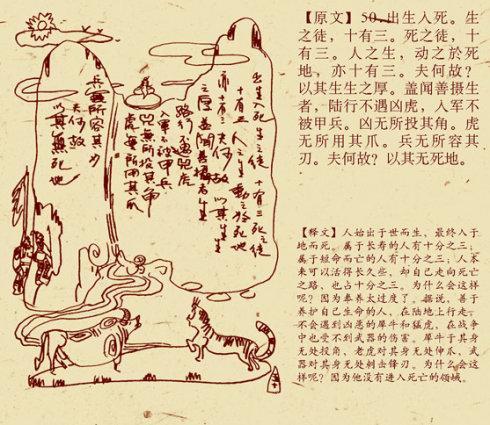 【原文】50.出生入死。生
之徒，十有三。死之徒，十
有三。人之生，动之於死
地，亦十有三。夫何故？
以其生生之厚。盖闻善摄生
者，陆行不遇凶虎，入军不
被甲兵。凶无所投其角。虎
无所用其爪。兵无所容其
刃。夫何故？以其无死地。
【释文】人始出于世而生，最终入于
地而死。属于长寿的人有十分之三；
属于短命而亡的人有十分之三；人本
来可以活得长久些，却自己走向死亡
之路，也占十分之三。为什么会这样
呢？因为奉养太过度了。据说，善于
养护自己生命的人，在陆地上行走，
不会遇到凶恶的犀牛和猛虎，在战争
中也受不到武器的伤害。犀牛于其身
无处投角、老虎对其身无处伸爪、武
器对其身无处刺击锋刃。为什么会这
样呢？因为他没有进入死亡的领域。
出生入死生之徒 十有三死之徒
十有三 人之生 動之於死地
亦十有三 夫何故 以其生生
之厚 蓋聞善攝者生
路行不遇兕虎
入軍不被甲兵
兕無所投其角
虎無所用其爪
兵無所容其刃
夫何故
以其無死地